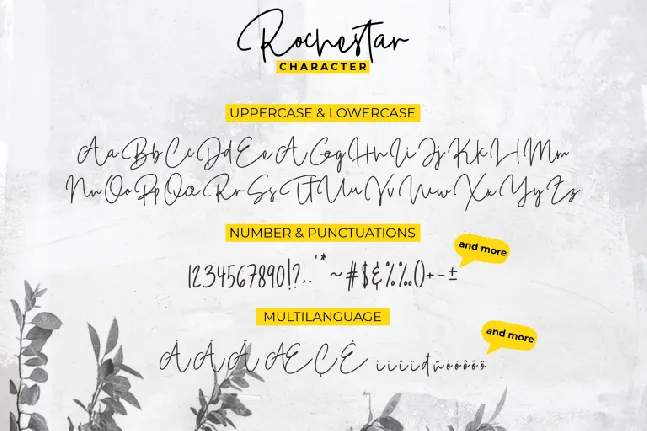 Rochestar
CHARACTER
UPPERCASE & LOWERCASE
Aa Bb Cc Dd Ee A Gg Hh Ii Jj Kk Ll Mm
Nn Oo Pp Qq Rr Ss Tt Uu Vv Ww Xx Yy Zz
NUMBER & PUNCTUATIONS
and more
1234567890!?..'*~#$&%‰()+-±
MULTILANGUAGE
and more